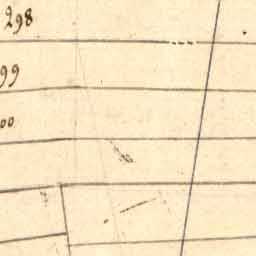 298
99
00